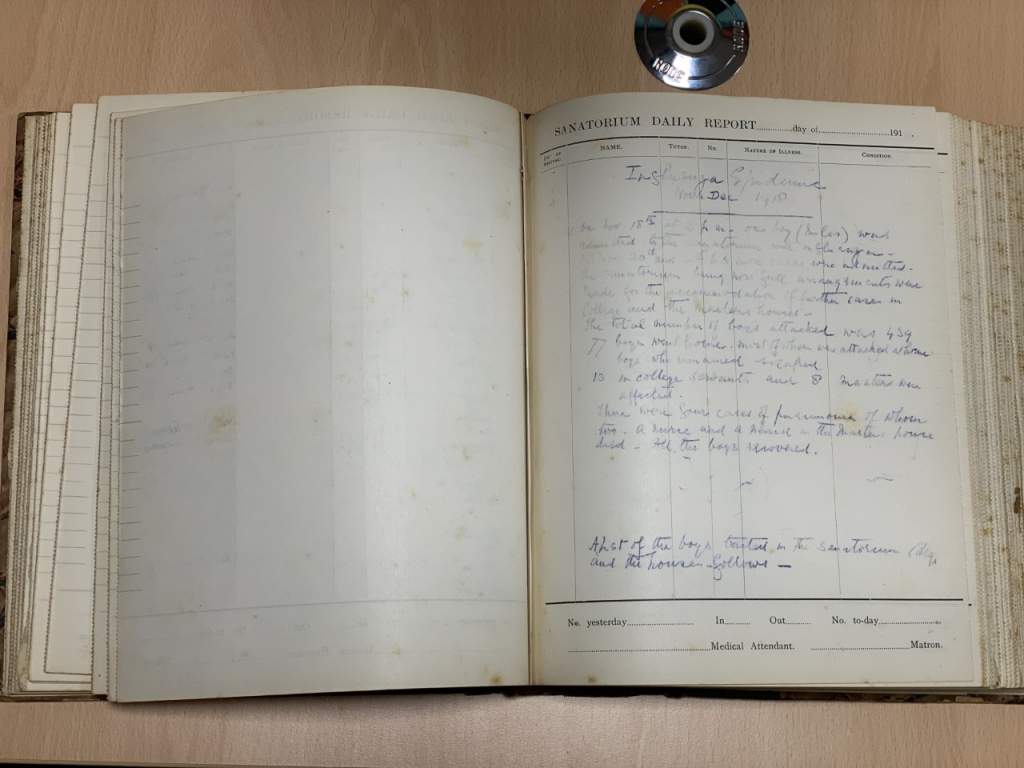 RØDE
RØDE
SANATORIUM DAILY REPORT..............day of..........................191 .
NAME.
TUTOR.
No.
NATURE OF ILLNESS.
CONDITION.
Influenza Epidemic
Nov. Dec 1918
On Nov. 18th at 6 p.m. one boy (Miles) was
admitted to the Sanatorium with influenza.
20th more cases were admitted.
The Sanatorium being now full arrangements were
made for the accommodation of further cases in
College and the Masters houses.
The total number of boys attacked was 439
77 boys went home. most of whom were attacked at home
boys who remained escaped.
13 in college servants and 8 masters were
affected.
There were four cases of pneumonia of whom
two. A nurse and a in the Masters house
died. All the boys recovered.
A list of the boys treated in the sanatorium
and the houses follows —
No. yesterday................ In........ Out........ No. to-day................
................Medical Attendant. ................Matron.